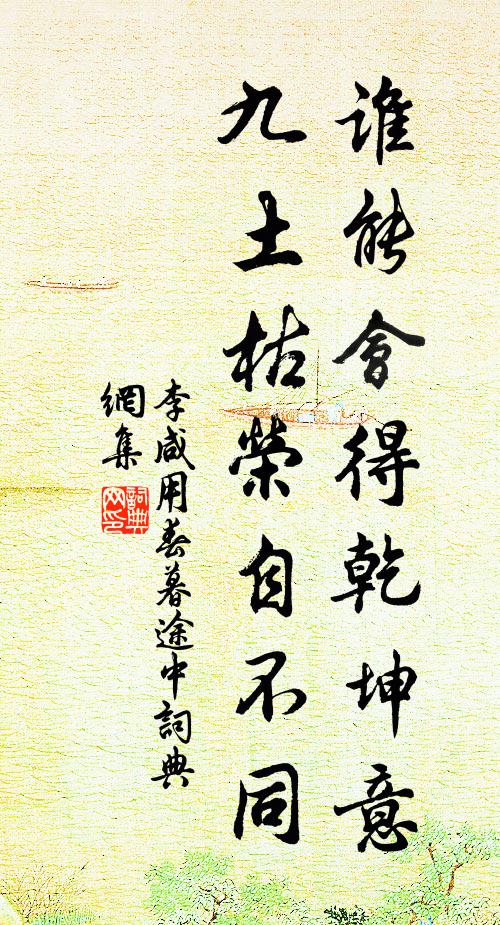 誰能會得乾坤意
九土枯榮自不同
李咸用春暮途中詞典
網集
詞典
网印